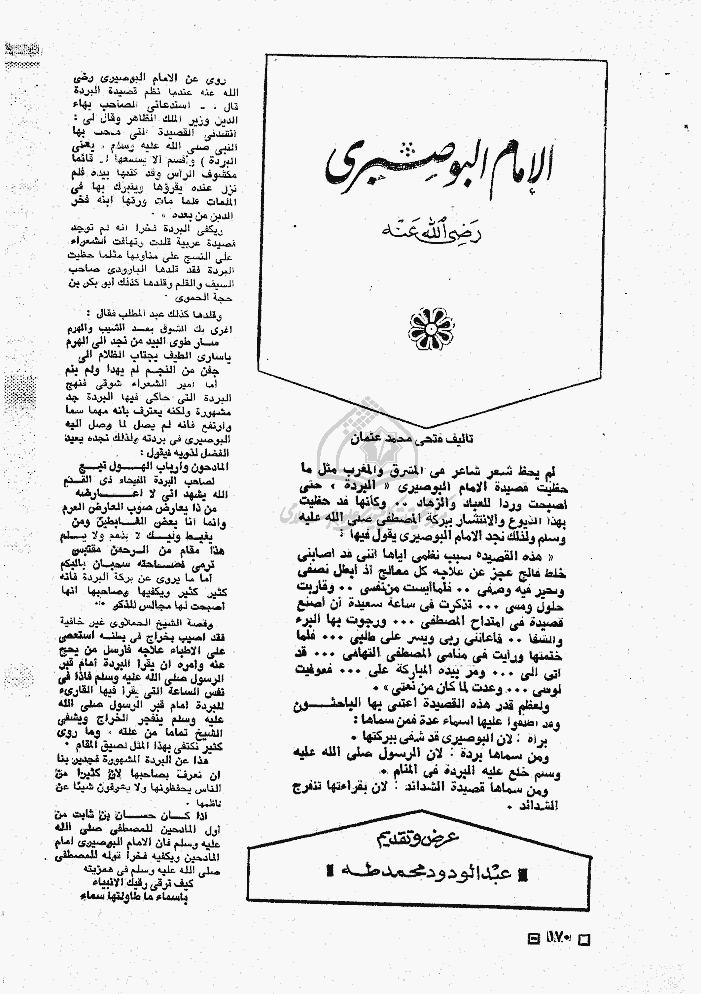 الإمام البوصيرى
رَضِىَ اللّٰه عَنْه
تأليف فتحى محمد عثمان
لم يحظ شعر شاعر فى المشرق والمغرب مثل ما
حظيت قصيدة الامام البوصيرى « البردة » حتى
اصبحت وردا للعباد والزهاد .. وكأنها قد حظيت
بهذا الذيوع والانتشار ببركة المصطفى صلى الله عليه
وسلم ولذلك نجد الامام البوصيرى يقول فيها :
« هذه القصيدة سبب نظمى اياها اننى قد اصابنى
خلط فالج عجز عن علاجه كل معالج اذ أبطل نصفى
وحير فيه وصفى .. فلما أيست من نفسى .. وقاربت
حلول رمسى ... تذكرت فى ساعة سعيدة أن أصنع
قصيدة فى امتداح المصطفى ... ورجوت بها البرء
والشفا .. فأعاننى ربى ويسر على طلبى ... فلما
ختمتها ورأيت فى منامى المصطفى التهامى ... قد
اتى الى ... ومر بيده المباركة على ... فعوفيت
لوقتى ... وعدت لما كان من نعتى » .
ولعظم قدر هذه القصيدة اعتنى بها الباحثون
وقد اطلقوا عليها اسماء عدة فمن سماها :
برأة : لان البوصيرى قد شفى ببركتها .
ومن سماها بردة : لان الرسول صلى الله عليه
وسلم خلع عليه البردة فى المنام .
ومن سماها قصيدة الشدائد : لان بقراءتها تنفرج
الشدائد .
عرض وتقديم
عبد الودود محمد طه
روى عن الامام البوصيرى رضى
الله عنه عندما نظم قصيدة البردة
قال . . استدعانى الصاحب بهاء
الدين وزير الملك الظاهر وقال لى :
انشدنى القصيدة التى مدحت بها
النبى صلى الله عليه وسلم ( يعنى
البردة ) واقسم الا يسمعها الا قائما
مكشوف الرأس وقد كتبها بيده فلم
تزل عنده يقرؤها ويتبرك بها فى
الملمات فلما مات ورثها ابنه فخر
الدين من بعده » .
ويكفى البردة فخرا انه لم توجد
قصيدة عربية قلدت وتهافت الشعراء
على النسج على منوالها مثلما حظيت
البردة فقد قلدها البارودى صاحب
السيف والقلم وقلدها كذلك أبو بكر بن
حجة الحموى .
وقلدها كذلك عبد المطلب فقال :
اغرى بك الشوق بعد الشيب والهرم
سار طوى البيد من نجد الى الهرم
ياسارى الطيف يجتاب الظلام الى
جفن من النجم لم يهدأ ولم ينم
أما أمير الشعراء شوقى فنهج
البردة التى حاكى فيها البردة جد
مشهورة ولكنه يعترف بأنه مهما سما
وارتفع فانه لم يصل لما وصل اليه
البوصيرى فى بردته ولذلك نجده يعيد
الفضل لذويه فيقول :
المادحون وأرباب الهوى تبع
لصاحب البردة الفيحاء ذى القدم
الله يشهد انى لا اعارضه
من ذا يعارض صوب العارض العرم
وانما انا بعض الغابطين ومن
يغبط وليك لا يذمم ولا يسلم
هذا مقام من الرحمن مقتبس
ترمى فصاحته سحبان بالبكم
أما ما يروى عن بركة البردة فانه
كثير كثير ويكفيها وصاحبها انها
أصبحت لها مجالس للذكر ..
وقصة الشيخ الحملاوى غير خافية
فقد اصيب بخراج فى بطنه استعصى
على الاطباء علاجه فأرسل من يحج
عنه وأمره ان يقرأ البردة أمام قبر
الرسول صلى الله عليه وسلم فاذا فى
نفس الساعة التى يقرأ فيها القارىء
للبردة أمام قبر الرسول صلى الله
عليه وسلم ينفجر الخراج ويشفى
الشيخ تماما من علته ، وما روى
كثير نكتفى بهذا المثل لضيق المقام .
هذا عن البردة المشهورة فجدير بنا
ان نعرفه بصاحبها لان كثيرا من
الناس يحفظونها ولا يعرفون شيئا عن
ناظمها .
اذا كان حسان بن ثابت من
أول المادحين للمصطفى صلى الله
عليه وسلم فان الامام البوصيرى امام
المادحين ويكفيه فخرا قوله للمصطفى
صلى الله عليه وسلم فى همزيته
كيف ترقى رقيك الانبياء
ياسماء ما طاولتها سماء
١٧٠